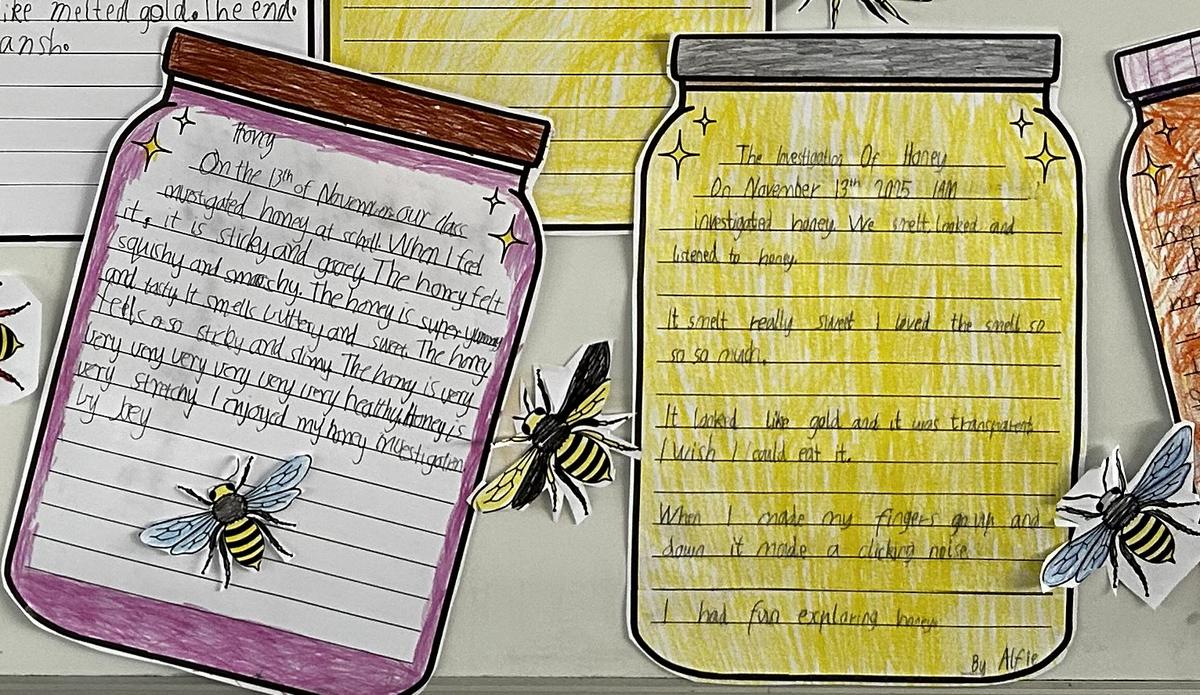 ike melted gold. The end.
ansh.
Honey
On the 13th of November our class
investigated honey at scholl. When I feel
it, it is sticky and gooey. The honey felt
squishy and smoochy. The honey is super yummy
and tasty. It smells buttery and sweet. The honey
feels also sticky and slimy. The honey is very
very very very very very very healthy. Honey is
very stretchy. I enjoyed my honey investigation
by Joey
The Investigation Of Honey
On November 13th 2025 1AM
investigated honey. We smelt, looked and
listened to honey.
It smelt really sweet I loved the smell so
so so much.
It looked like gold and it was transparent
I wish I could eat it.
When I made my fingers go up and
down it made a clicking noise
I had fun exploring honey.
By Alfie